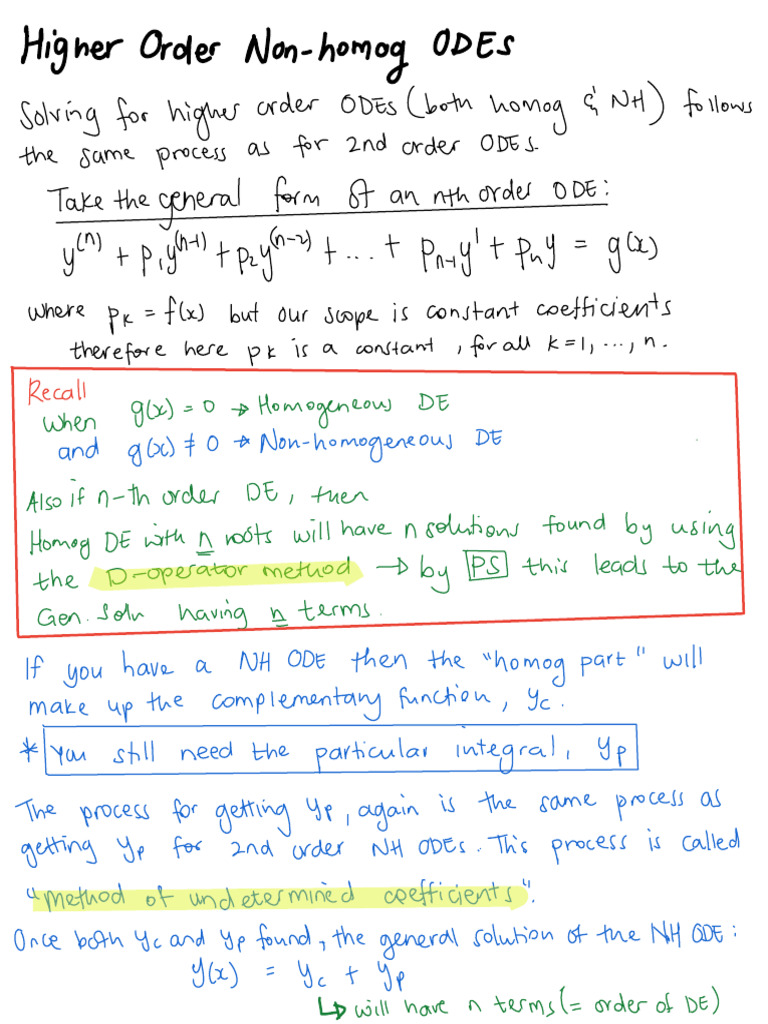 Higher Order Non-homog ODEs
Solving for higher order ODEs (both homog & NH) follows
the same process as for 2nd order ODEs.
Take the general form of an nth order ODE:
y⁽ⁿ⁾ + p₁y⁽ⁿ⁻¹⁾ + p₂y⁽ⁿ⁻²⁾ + ... + pₙ₋₁y' + pₙy = g(x)
where pₖ = f(x) but our scope is constant coefficients
therefore here pₖ is a constant, for all k=1, ..., n.
Recall
when g(x) = 0 → Homogeneous DE
and g(x) ≠ 0 → Non-homogeneous DE
Also if n-th order DE, then
Homog DE with n roots will have n solutions found by using
the D-operator method → by PS this leads to the
Gen. Soln having n terms.
If you have a NH ODE then the "homog part" will
make up the complementary function, yc.
* You still need the particular integral, yp
The process for getting yp, again is the same process as
getting yp for 2nd order NH ODEs. This process is called
"method of undetermined coefficients".
Once both yc and yp found, the general solution of the NH ODE:
y(x) = yc + yp
↳ will have n terms (= order of DE)